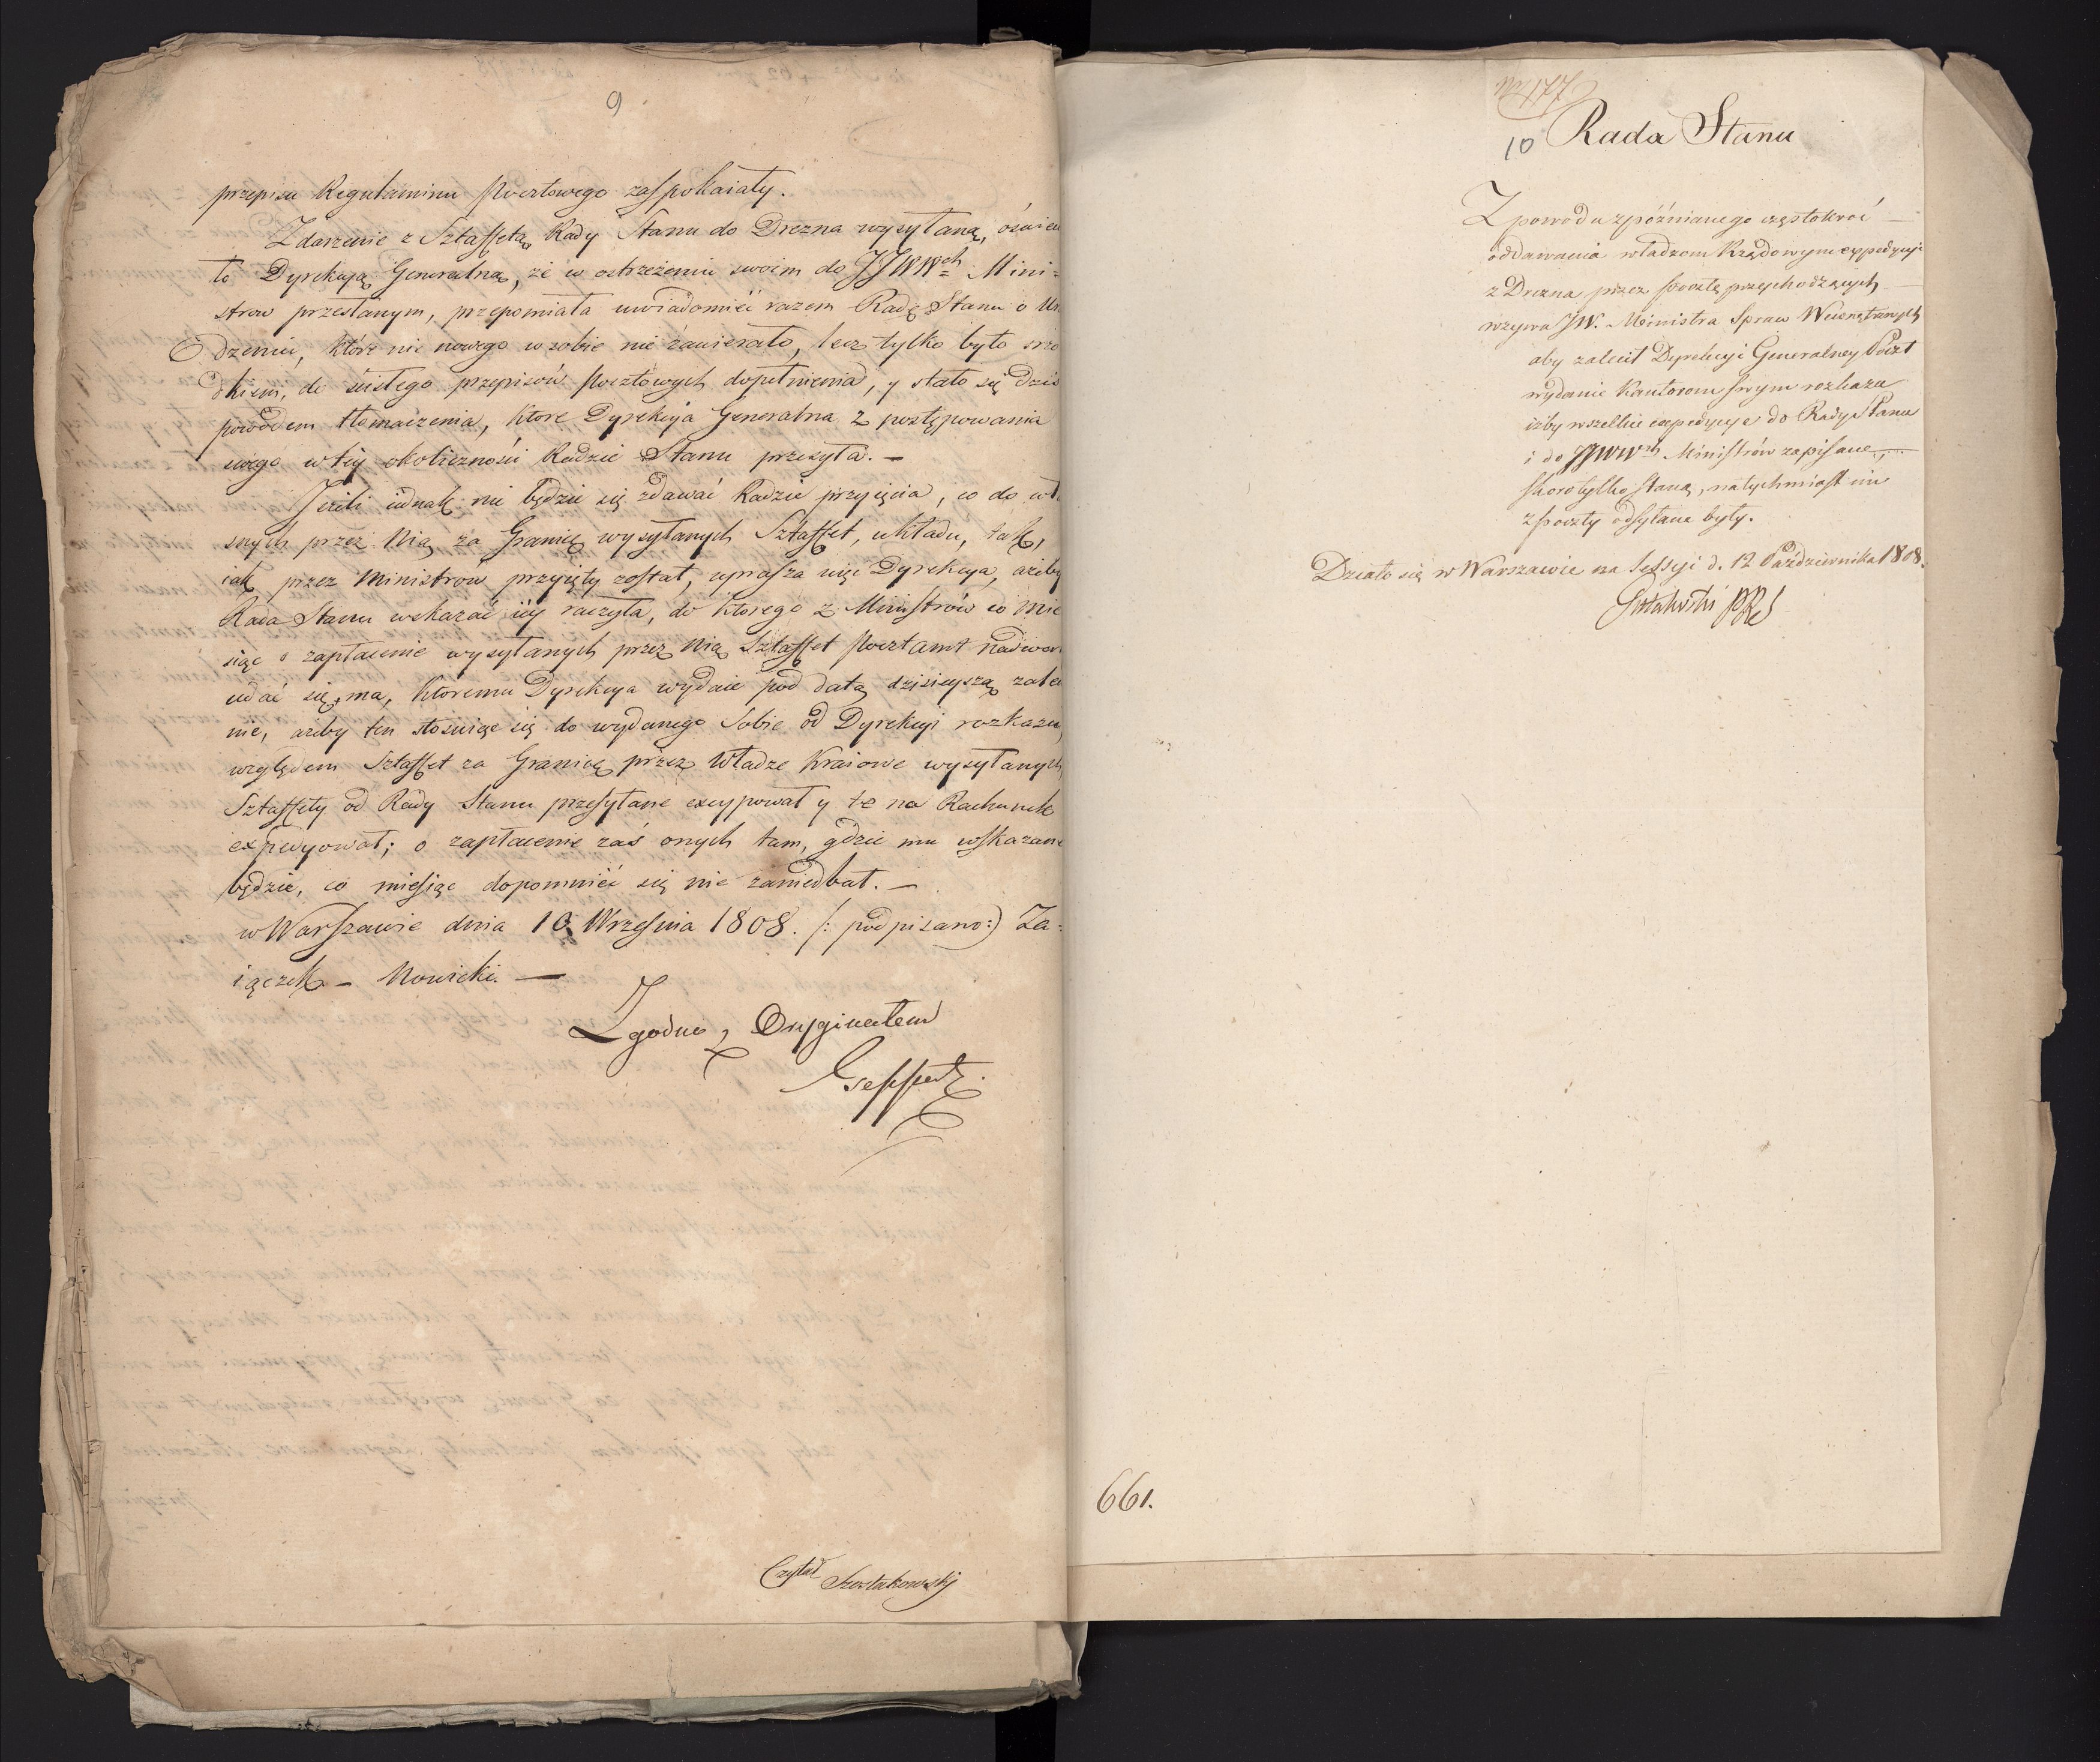 9
przepisu Regulaminu Pocztowego zaspokaiały.
Zdarzenie z Sztaffetą Rady Stanu do Drezna wysyłaną, oświeci
ło Dyrekcyą Generalną, że w ostrzeżeniu swoim do JJWWch Mini=
strow przesłanym, przepomniała uwiadomić razem Radę Stanu o Urzą
dzeniu, które nic nowego w sobie nie zawierało, lecz tylko było śro
dkiem, do ścisłego przepisów Pocztowych dopełnienia, y stało się dziś
powodem tłomaczenia, które Dyrekcyja Generalna z postępowania
swego w tey okoliczności Radzie Stanu przesyła. —
Jeżeli iednak nie będzie się zdawać Radzie przyięcia, co do wła
snych przez Nią za Granicę wysyłanych Sztaffet, układu, tak,
iak przez Ministrow przyięty został, uprasza więc Dyrekcya, ażeby
Rada Stanu wskazać iey raczyła, do ktorego z Ministrów co Mie
siąc o zapłacenie wysyłanych przez Nią Sztaffet Pocztamt Nadworn
udać się ma, ktoremu Dyrekcya wydaie pod datą dzisieyszą zalece
nie, ażeby ten stosuiąc się do wydanego sobie od Dyrekcyi rozkazu,
względem Sztaffet za Granicę przez Władze Kraiowe wysyłanych
Sztaffety od Rady Stanu przesyłane excypował y te na Rachunek
expedyował; o zapłacenie zaś onych tam, gdzie mu wskazane
będzie, co miesiąc dopomnieć się nie zaniedbał. —
w Warszawie dnia 10 Września 1808. /: podpisano:) Za=
iączek – Nowicki. —
Zgodno z Oryginałem
Geppert
Czytał Szostakowski
No 177
10 Rada Stanu
Z powodu zpóźnianego częstokroć —
oddawania władzom Rządowym expedycyi
z Drezna przez pocztę przychodzących —
wzywa JW. Ministra Spraw Wewnętrznych
aby zalecił Dyrekcyi Generalney Poczt
wydanie Kantorom swym rozkazu
iżby wszelkie expedycye do Rady Stanu
i do JJWWch Ministrów zapisane —
skoro tylko staną, natychmiast im
z poczty odsyłane były.
Działo się w Warszawie na Sessyi d. 12 Października 1808.
Gutakowski PRS
661.